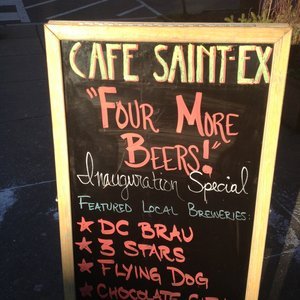 CAFE SAINT-EX
"FOUR MORE
BEERS!"
Inauguration Special
FEATURED LOCAL BREWERIES:
★ DC BRAU
★ 3 STARS
★ FLYING DOG
★ CHOCOLATE